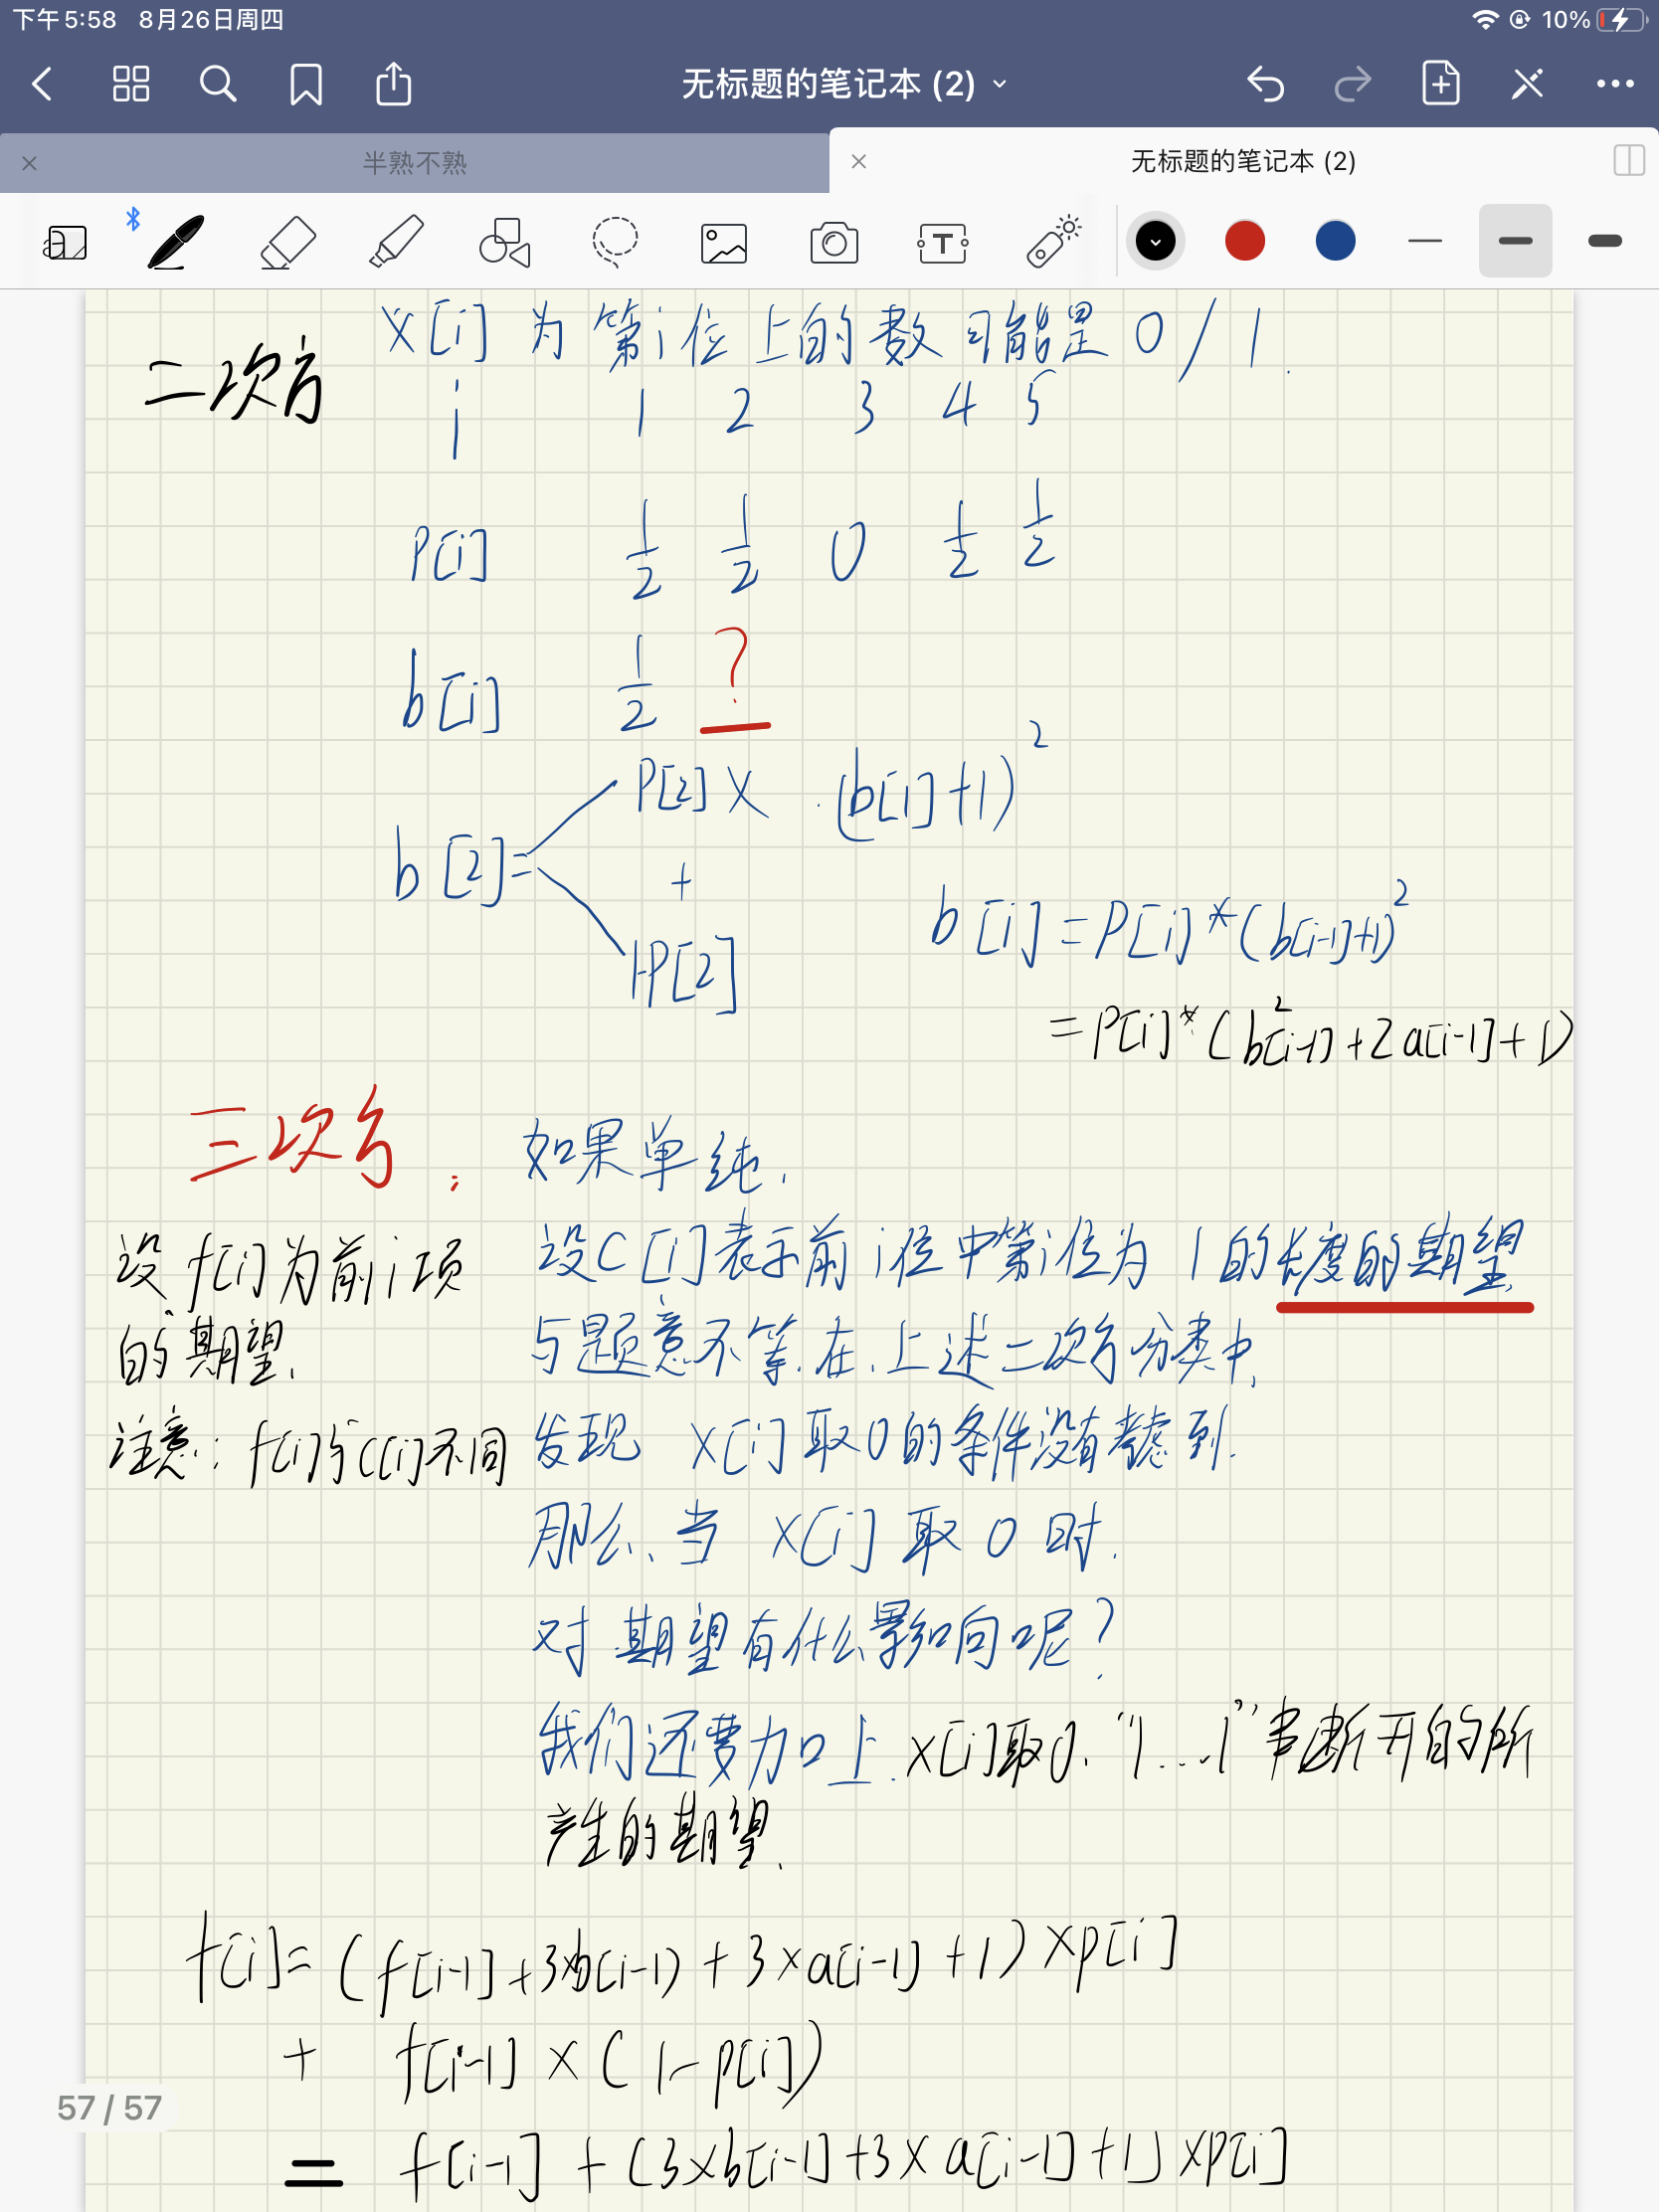 下午5:58 8月26日周四
10%
无标题的笔记本 (2)
半熟不熟
无标题的笔记本 (2)
X[i] 为第i位上的数可能是 0/1.
二次方
i 1 2 3 4 5
P[i] 1/2 1/2 0 1/2 1/2
b[i] 1/2 ?
P[2] × (b[1]+1)²
b[2]=
+
1-P[2]
b[i] = P[i]*(b[i-1]+1)²
= P[i]*(b²[i-1]+2a[i-1]+1)
三次方: 如果单纯.
设 f[i]为前i项
的期望.
注意: f[i]与C[i]不同
设C[i]表示前i位中第i位为1的长度的期望
与题意不等.在.上述二次方分类中,
发现 X[i]取0的条件没有考虑到.
那么、当 X[i] 取 0 时.
对期望有什么影响呢?
我们还要加上.X[i]取0."1...1"串断开的所
产生的期望.
f[i]= (f[i-1]+3×b[i-1)+3×a[i-1]+1)×p[i]
+ f[i-1]×(1-p[i])
= f[i-1]+(3×b[i-1]+3×a[i-1]+1)×p[i]
57 / 57